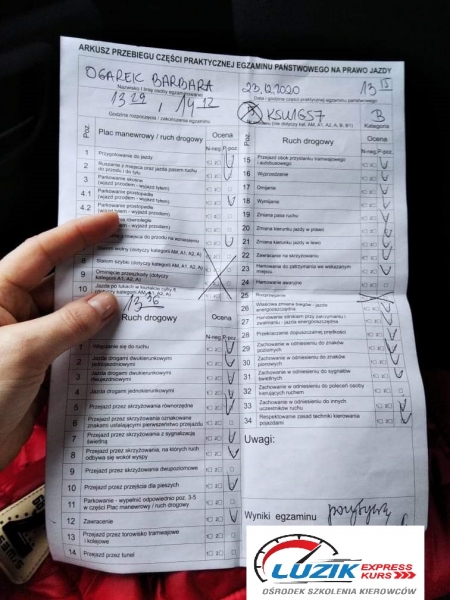 ARKUSZ PRZEBIEGU CZĘŚCI PRAKTYCZNEJ EGZAMINU PAŃSTWOWEGO NA PRAWO JAZDY
OGAREK BARBARA
Nazwisko i imię osoby egzaminowanej
13 29 , 14 12
Godzina rozpoczęcia / zakończenia egzaminu
23.12.2020 13 15
Data i godzina części praktycznej egzaminu państwowego
KSU1657 B
(nie dotyczy kat. AM, A1, A2, A, B, B1) Kategoria
Poz. Plac manewrowy / ruch drogowy Ocena
N-neg. P-poz.
1 Przygotowanie do jazdy
2 Ruszanie z miejsca oraz jazda pasem ruchu do przodu i do tyłu
3 Parkowanie skośne (wjazd przodem - wyjazd tyłem)
4.1 Parkowanie prostopadłe (wjazd przodem - wyjazd tyłem)
4.2 Parkowanie prostopadłe (wjazd tyłem - wyjazd przodem)
równoległe
wyjazd przodem)
przodu na wzniesieniu
8 Slalom szybki (dotyczy kategorii AM, A1, A2, A)
9 Ominięcie przeszkody (dotyczy kategorii A1, A2, A)
10 Jazda po łukach w kształcie cyfry 8 (dotyczy kategorii AM, A1, A2, A)
13 36
Ruch drogowy Ocena
N-neg. P-poz.
1 Włączanie się do ruchu
2 Jazda drogami dwukierunkowymi jednojezdniowymi
3 Jazda drogami dwukierunkowymi dwujezdniowymi
4 Jazda drogami jednokierunkowymi
5 Przejazd przez skrzyżowania równorzędne
6 Przejazd przez skrzyżowania oznakowane znakami ustalającymi pierwszeństwo przejazdu
7 Przejazd przez skrzyżowania z sygnalizacją świetlną
8 Przejazd przez skrzyżowania, na których ruch odbywa się wokół wyspy
9 Przejazd przez skrzyżowania dwupoziomowe
10 Przejazd przez przejścia dla pieszych
11 Parkowanie - wypełnić odpowiednio poz. 3-5 w części Plac manewrowy / ruch drogowy
12 Zawracanie
13 Przejazd przez torowisko tramwajowe i kolejowe
14 Przejazd przez tunel
Poz. Ruch drogowy Ocena
N-neg. P-poz.
15 Przejazd obok przystanku tramwajowego i autobusowego
16 Wyprzedzanie
17 Omijanie
18 Wymijanie
19 Zmiana pasa ruchu
20 Zmiana kierunku jazdy w prawo
21 Zmiana kierunku jazdy w lewo
22 Zawracanie na skrzyżowaniu
23 Hamowanie do zatrzymania we wskazanym miejscu
24 Hamowanie awaryjne
25 Rozprzęganie
26 Właściwa zmiana biegów - jazda energooszczędna
27 Hamowanie silnikiem przy zatrzymaniu i zwalnianiu - jazda energooszczędna
28 Przekroczenie dopuszczalnej prędkości
29 Zachowanie w odniesieniu do znaków poziomych
30 Zachowanie w odniesieniu do znaków pionowych
31 Zachowanie w odniesieniu do sygnałów świetlnych
32 Zachowanie w odniesieniu do poleceń osoby kierującej ruchem
33 Zachowanie w odniesieniu do innych uczestników ruchu
34 Respektowanie zasad techniki kierowania pojazdami
Uwagi:
Wyniki egzaminu pozytywny
LUZIK EXPRESS KURS
OŚRODEK SZKOLENIA KIEROWCÓW